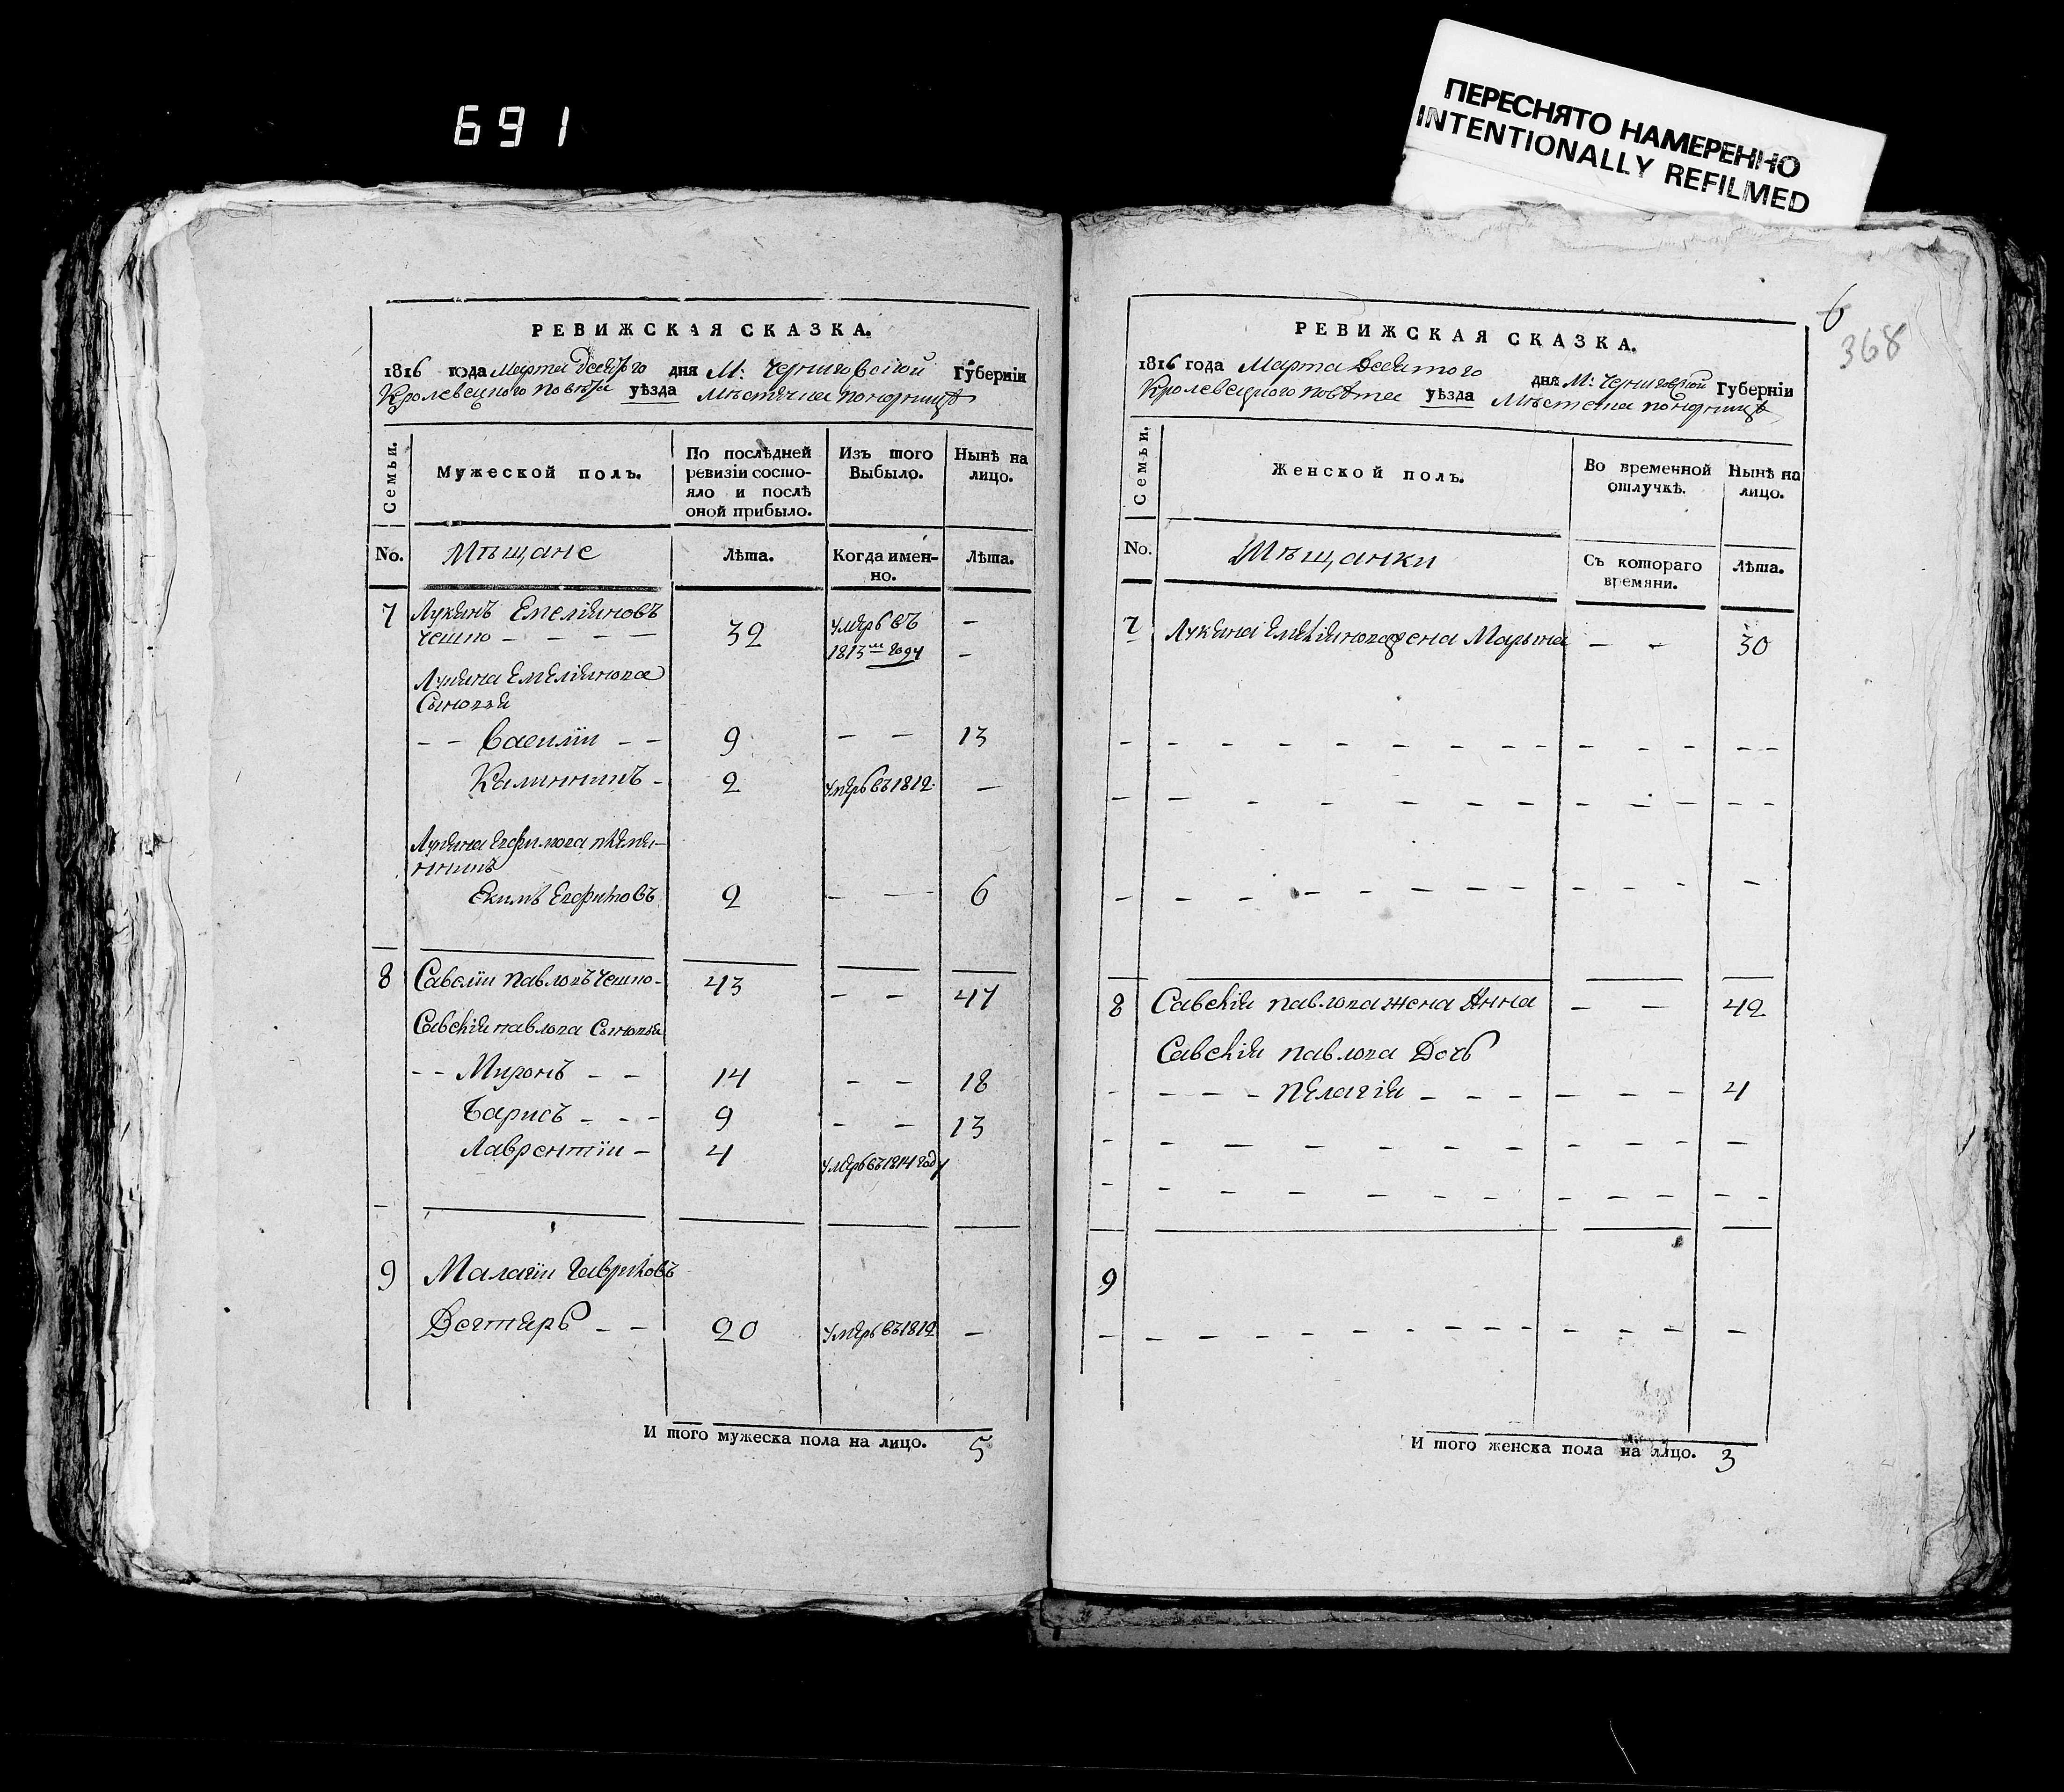 691
ПЕРЕСНЯТО НАМЕРЕННО
INTENTIONALLY REFILMED
РЕВИЖСКАЯ СКАЗКА.
1816 года Марта десятого дня М: Черниговской Губерніи
Кролевецкого повѣта уѣзда Мѣстечка Понорницѣ
Семьи.
Мужеской полъ.
По послѣдней
ревизіи состо-
яло и послѣ
оной прибыло.
Изъ того
Выбыло.
Нынѣ на
лицо.
No.
Мѣщане
Лѣта.
Когда имен-
но.
Лѣта.
7 Лукянъ Емеляновъ
32 умеръ въ –
1813м году –
Лукяна Емелянова
Сыновья
– – Василiи – – 9 – – 13
2 умеръ въ 1812 –
Екимъ 2 – – 6
8 Савелiи Павловъ 43 – – 47
Савелiя Павлова Сыновья
– – Миронъ – – 14 – – 18
Барисъ – – – 9 – – 13
Лаврентiи – 4 умеръ въ 1814 году
9 Малагiи Гавриловъ
Дегтяръ – – 20 умеръ въ 1812 –
И того мужеска пола на лицо. 5
6
368
РЕВИЖСКАЯ СКАЗКА.
1816 года Марта Десятого дня М: Черниговской Губерніи
Кролевецкого повѣта уѣзда Мѣстечка Понорницѣ
Семьи.
Женской полъ.
Во временной
отлучкѣ.
Нынѣ на
лицо.
No.
Мѣщанки
Съ котораго
времяни.
Лѣта.
7 Лукяна Емелянова жена Марьяна – – 30
8 Савелiя Павлова жена Анна – – 42
Савелiя Павлова Дочь
– – – Пелагiя – – – – – – 4
9
И того женска пола на лицо. 3